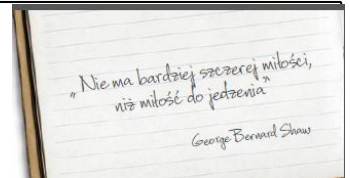 „Nie ma bardziej szczerej miłości,
niż miłość do jedzenia”
George Bernard Shaw